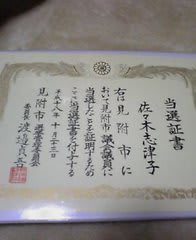 当選証書
佐々木志津子
右は見附市に
おいて見附市議会議員に
当選したことを証するため
ここに当選証書を付与する
平成十八年十月二十三日
見附市選挙管理委員会
委員長 渡辺貞吾